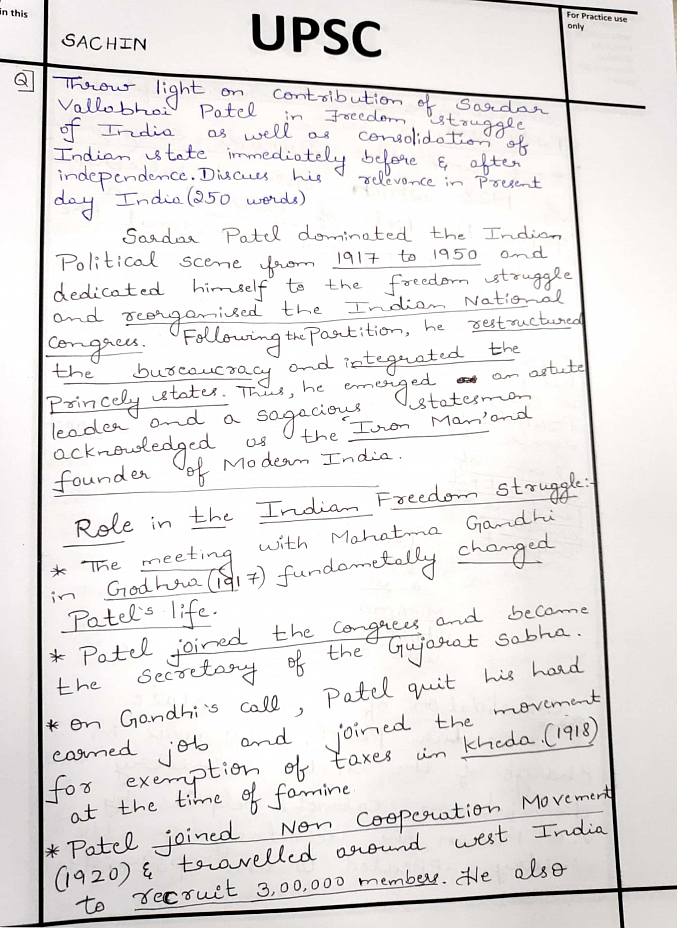 in this
SACHIN
UPSC
For Practice use
only
Q] Throw light on contribution of Sardar
Vallabhai Patel in Freedom struggle
of India as well as consolidation of
Indian state immediately before & after
independence. Discues his relevance in Present
day India (250 words)
Sardar Patel dominated the Indian
Political scene from 1917 to 1950 and
dedicated himself to the freedom struggle
and reorganised the Indian National
Congress. Following the Partition, he restructured
the bureaucracy and integrated the
Princely states. Thus, he emerged an astute
leader and a sagacious statesman
acknowledged as the 'Iron Man' and
founder of Modern India.
Role in the Indian Freedom Struggle:-
* The meeting with Mahatma Gandhi
in Godhra (1917) fundametally changed
Patel's life.
* Patel joined the congress and became
the secretary of the Gujarat Sabha.
* on Gandhi's call, Patel quit his hard
earned job and joined the movement
for exemption of taxes in kheda. (1918)
at the time of famine
* Patel joined Non Cooperation Movement
(1920) & travelled around west India
to recruit 3,00,000 members. He also